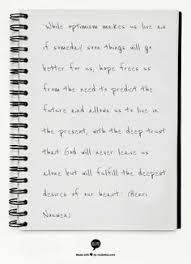 While optimism makes us live as
if someday soon things will go
better for us, hope frees us
from the need to predict the
future and allows us to live in
the present, with the deep trust
that God will never leave us
alone but will fulfill the deepest
desires of our heart. (Henri
Nouwen)